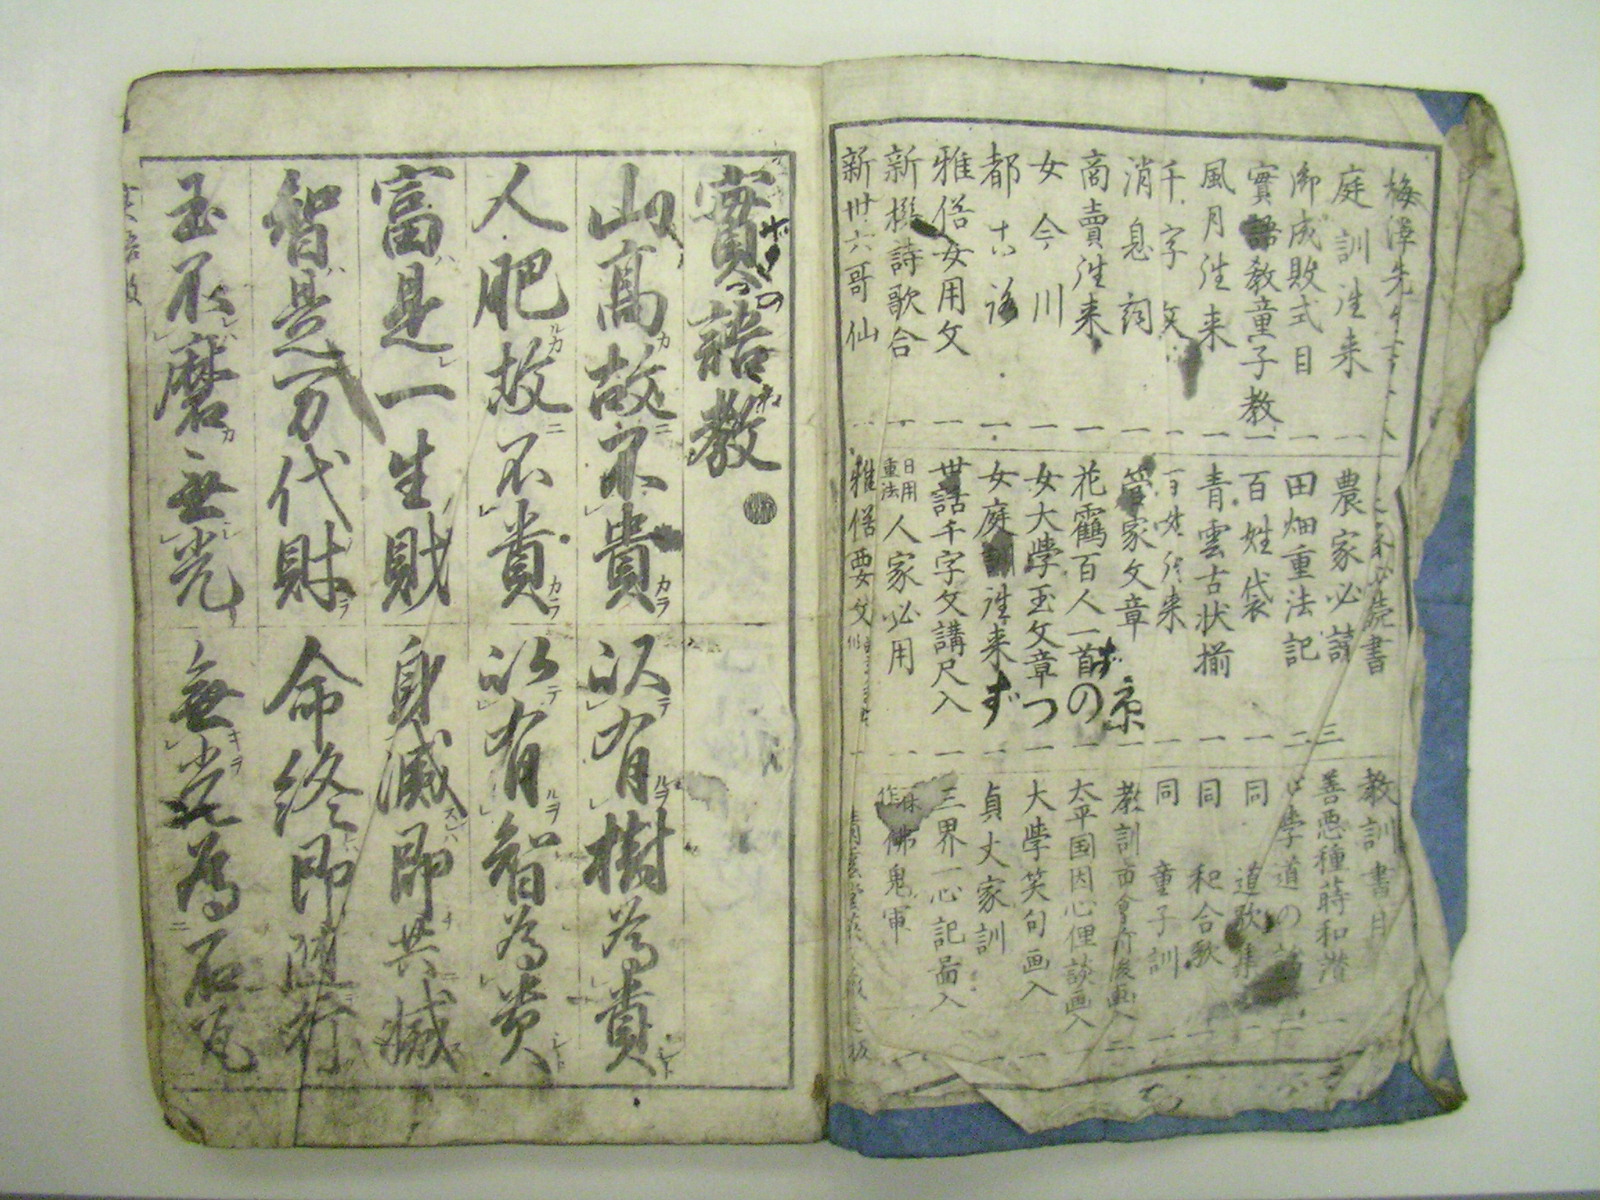 庭訓往来 一
御成敗式目 一
實語教童子教 一
風月往来 一
千字文 一
消息詞 一
商賣往来 一
女今川 一
都古路 一
雅俗女用文 一
新撰詩歌合 一
新卅六哥仙 一
農家必讀 三
田畑重法記 二
百姓袋 一
青雲古状揃 一
菅家文章 一
花鶴百人一首 一
女大學玉文章 一
女庭訓往来 一
世話千字文講尺入 一
日用重法 人家必用 一
雅俗要文
教訓書目
善悪種蒔和讃 一
同 道歌集 一
同 和合歌 一
同 童子訓 一
太平国因心俚談画入 一
大學笑句画入 一
貞丈家訓 一
三界一心記畵入
佛鬼軍 一
實語教
山高故不貴 以有樹為貴
人肥故不貴 以有智為貴
富是一生財 身滅即共滅
智是万代財 命終即随行
玉不磨無光 無光為石瓦